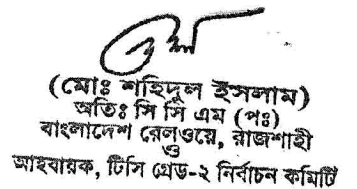 (মোঃ শহিদুল ইসলাম)
অতিঃ সি সি এম (পঃ)
বাংলাদেশ রেলওয়ে, রাজশাহী
ও
আহবায়ক, টিসি গ্রেড-২ নির্বাচন কমিটি